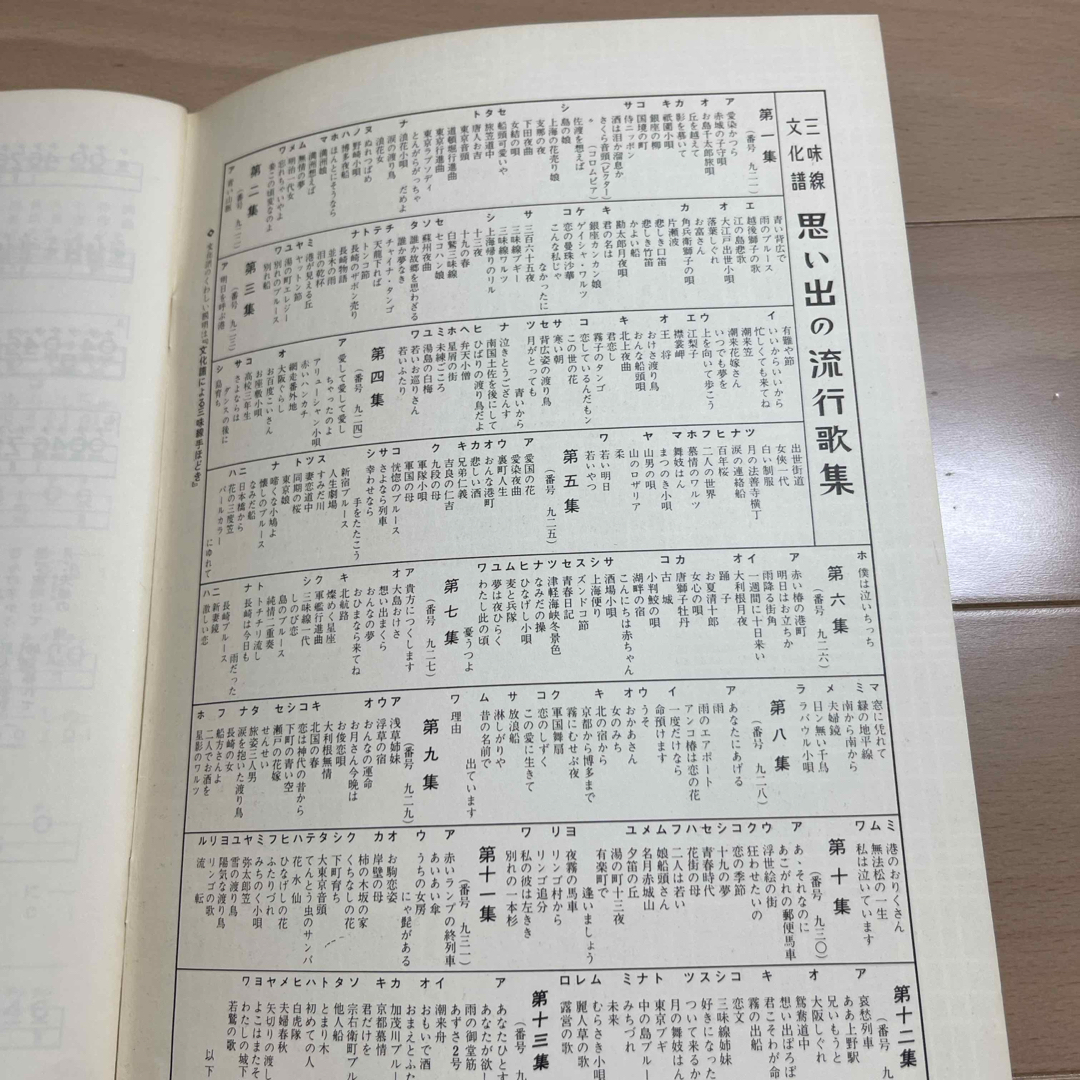 三味線
文化譜
思い出の流行歌集
第一集
(番号 九二一)
ア 愛染かつら
赤城の子守唄
オ お島千太郎旅唄
丘を越えて
カ 影を慕いて
キ 祇園小唄
銀座の柳
コ 国境の町
サ 侍ニッポン
酒は泪か溜息か
さくら音頭(ビクター)
〃(コロムビア)
シ 佐渡を想えば
島の娘
支那の夜
上海の花売り娘
下田夜曲
女給の唄
セ 船頭可愛いや
タ 旅笠道中
ト 唐人お吉
東京音頭
道頓堀行進曲
東京行進曲
東京ラプソディ
とんがらがっちゃだめよ
ナ 浪花小唄
涙の渡り鳥
浪花女
ヌ ぬれつばめ
ノ 野崎小唄
ハ 博多夜船
ホ ほんとにそうなら
マ 満洲娘
満洲想えば
ム 無情の夢
メ 明治一代女
ワ 忘れちゃいやよ
妾この頃変なのよ
第二集
(番号 九二二)
ア 青い山脈
青い背広で
雨のブルース
エ 越後獅子の歌
江の島悲歌
オ 大江戸出世小唄
落葉しぐれ
お富さん
カ 角兵衛獅子の唄
片瀬波
悲しき口笛
悲しき竹笛
かよい船
勘太郎月夜唄
キ 君の名は
銀座カンカン娘
ケ ゲイシャ・ワルツ
コ 恋の曼珠沙華
こんな私じゃなかったに
サ 三百六十五夜
三味線ブギー
三味線ワルツ
シ 上海帰りのリル
十三夜
十九の春
白鷺三味線
セ セコハン娘
ソ 蘇州夜曲
タ 誰か故郷を思わざる
誰か夢なき
チ チャイナ・タンゴ
テ 天龍下れば
ト トンコ節
ナ 長崎のザボン売り
長崎物語
並木の雨
泪の乾杯
ミ 港が見える丘
ヤ ヤットン節
ユ 湯の町エレジー
ワ 別れのブルース
別れ船
第三集
(番号 九二三)
ア 明日を呼ぶ港
有難や節
イ いいからいいから
忙しくても来てね
潮来笠
潮来花嫁さん
いつでも夢を
ウ 上を向いて歩こう
エ 江梨子
襟裳岬
オ 王将
おけさ渡り鳥
おんな船頭唄
キ 北上夜曲
君恋し
霧子のタンゴ
コ 恋しているんだもン
この世の花
サ 寒い朝
セ 背広姿の渡り鳥
ツ 月がとっても青いから
ナ 泣きとうござんす
南国土佐を後にして
ヒ ひばりの渡り鳥だよ
ヘ 弁天小僧
ホ 星屑の街
ミ 未練ごころ
ユ 湯島の白梅
ワ 若いお巡りさん
若いふたり
第四集
(番号 九二四)
ア 愛して愛して愛しちゃったのよ
アリューシャン小唄
赤いハンカチ
網走番外地
オ 大阪ぐらし
お百度こいさん
お座敷小唄
コ 高校三年生
サ さよならは
ダンスの後に
シ 島育ち
出世街道
女侠一代
白い制服
ツ 月の法善寺横丁
ナ 涙の連絡船
ヒ 百年桜
フ 二人の世界
ホ 慕情のワルツ
マ 舞妓はん
まつのき小唄
ヤ 山男の唄
山のロザリア
柔
ワ 若い明日
若いやつ
第五集
(番号 九二五)
ア 愛国の花
愛染夜曲
ウ 裏町人生
オ おんな港町
カ 悲しい酒
キ 兄弟仁義
吉良の仁吉
ク 九段の母
軍隊小唄
軍国の母
コ 恍惚のブルース
サ さよなら列車
シ 幸わせなら手をたたこう
新宿ブルース
人生劇場
ス すみだ川
ツ 妻恋道中
ト 同期の桜
東京娘
ナ 啼くな小鳩よ
懐しのブルース
なみだ船
ニ 日本橋から
ハ 花の三度笠
パールカラーにゆれて
ホ 僕は泣いちっち
第六集
(番号 九二六)
ア 赤い椿の港町
明日はお立ちか
雨降る街角
イ 一週間に十日来い
オ 大利根月夜
踊子
お夏清十郎
女心の唄
カ 唐獅子牡丹
コ 古城
小判鮫の唄
湖畔の宿
こんにちは赤ちゃん
サ 酒場小唄
シ 上海便り
ス ズンドコ節
セ 青春日記
ツ 津軽海峡冬景色
ナ なみだの操
ヒ ひなげし小唄
ム 麦と兵隊
ユ 夢は夜ひらく
ワ わたし此の頃憂うつよ
第七集
(番号 九二七)
ア 貴方につくします
オ 大島おけさ
想い出まくら
おんなの夢
おひまなら来てね
キ 北航路
燦めく星座
ク 軍艦行進曲
シ 三味線一代
しのび恋
島のブルース
純情二重奏
ト トチチリ流し
ナ 長崎は今日も雨だった
長崎ブルース
ニ 新妻鏡
ハ 激しい恋
マ 窓に凭れて
ミ 緑の地平線
南から南から
メ 夫婦鏡
目ン無い千鳥
ラ ラバウル小唄
第八集
(番号 九二八)
ア あなたにあげる
雨
雨のエアポート
アンコ椿は恋の花
イ 一度だけなら
命預けます
ウ うそ
オ おかあさん
女のみち
キ 北の宿から
京都から博多まで
霧にむせぶ夜
ク 軍国舞扇
コ 恋のしずく
この愛に生きて
サ 放浪船
淋しがりや
ム 昔の名前で出ています
ワ 理由
第九集
(番号 九二九)
ア 浅草姉妹
ウ 浮草の宿
オ おんなの運命
お月さん今晩は
お俊恋唄
大利根無情
キ 北国の春
コ 恋は神代の昔から
シ 下町の青い空
セ 瀬戸の花嫁
せんせい
タ 旅姿三人男
ナ 涙を抱いた渡り鳥
長崎の女
フ 船方さんよ
二人でお酒を
ホ 星影のワルツ
ミ 港のおりくさん
ム 無法松の一生
ワ 私は泣いています
第十集
(番号 九三〇)
ア あゝそれなのに
あこがれの郵便馬車
ウ 浮世絵の街
ク 狂わせたいの
コ 恋の季節
シ 十九の夢
セ 青春時代
ハ 花街の母
フ 二人は若い
ム 娘船頭さん
メ 名月赤城山
ユ 夕笛
湯の町十三夜
有楽町で逢いましょう
ヨ 夜霧の馬車
リ リンゴ村から
リンゴ追分
ワ 私の彼は左きき
別れの一本杉
第十一集
(番号 九三一)
ア 赤いランプの終列車
あいあい傘
ウ うちの女房にゃ髭がある
オ お駒恋姿
カ 岸壁の母
柿の木坂の家
ク くちなしの花
シ 下町育ち
タ 大東京音頭
テ てんとう虫のサンバ
ハ 花水仙
ヒ ひなげしの花
フ ふたりづれ
ミ みちのく小唄
ヤ 弥太郎笠
ユ 雪の渡り鳥
ヨ 陽気な渡り鳥
リ リンゴの歌
ル 流転
第十二集
(番号 九
ア 哀愁列車
ああ上野駅
兄いもうと
オ 大阪しぐれ
鴛鴦道中
想い出ぼろぼ
キ 君こそわが命
霧の出船
コ 恋文
シ 三味線姉妹
ス 好きになった
ツ ついて来るか
月の舞妓はん
ト 東京ブギ
ナ 中の島ブルー
ミ みちづれ
未来
ム むらさき小唄
レ 麗人草の歌
ロ 露営の歌
第十三集
(番号
ア あなたひとす
あなたが欲し
雨の御堂筋
あずさ2号
イ 潮来舟
オ おもいで酒
おまえとふた
カ 加茂川ブルー
キ 京都慕情
君だけを
ソ 宗右衛門町ブル
タ 他人船
ト とまり木
ハ 初めての人
白虎隊
メ 夫婦春秋
ヤ 矢切りの渡し
ヨ よこはまたそ
ワ わたしの城下
若鷲の歌
以下
◇ 文化譜のくわしい説明は『文化譜による三味線手ほどき』